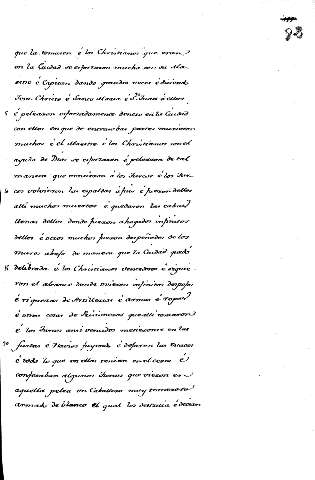 83
que la tomaron é los Christianos que eran
en la Ciudad se esforzaron mucho con su Ma-
estro é Capitan dando grandes voces é diciendo
Jesu Christo é Santa Maria é Sn. Juan é ellos
5 é pelearon esforzadamente dentro en la Ciudad
con ellos en que de entrambas partes murieron
muchos é el Maestre é los Christianos con el
ayuda de Dios se esforzaron é pelearon de tal
manera que vencieron á los Turcos é los Tur-
10 cos volvieron las espaldas á fuir é fueron dellos
alli muchos muertos é quedaron las cabas
llenas dellos donde fueron ahogados infinitos
dellos é otros muchos fueron despeñados de los
muros abajo de manera que la Ciudad quedó
15 delibrada é los Christianos vencedores é sigue-
ron el alcance donde ovieron infinidad despojos
é riquezas de Artilleria é armas é ropas
é otras cosas de
é los Turcos ansi vencidos metieronse en las
20 fustas é Navios fuyendo é dejaron las estacas
é todo lo que en ellas tenian en el cerco é
confesaban algunos Turcos que vieron en
aquella pelea un Caballero muy
armado de blanco el qual los destruía é decian